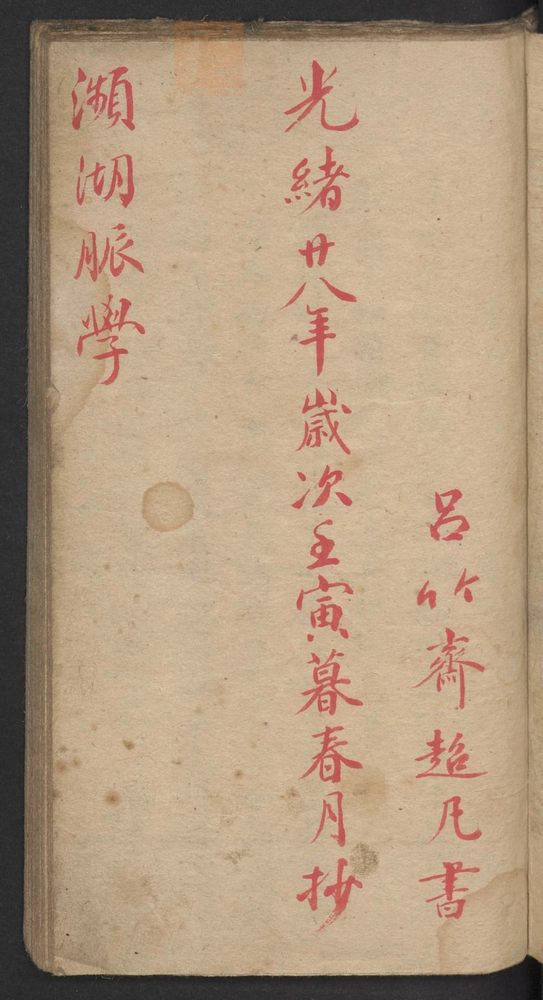 呂竹齋超凡書
光緒廿八年歲次壬寅暮春月抄
瀕湖脈學